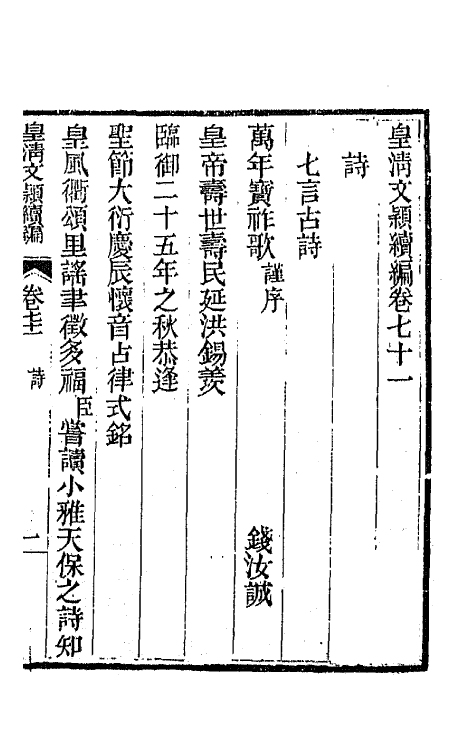 皇淸文穎續編卷七十一
詩
七言古詩
萬年寶祚歌謹序 錢汝誠
皇帝壽世壽民延洪錫羨
臨御二十五年之秋恭逢
聖節大衍慶辰懷音占律式銘
皇風衢頌里謠聿徵多福臣嘗讀小雅天保之詩知
皇淸文穎續編 卷七十一 詩 一